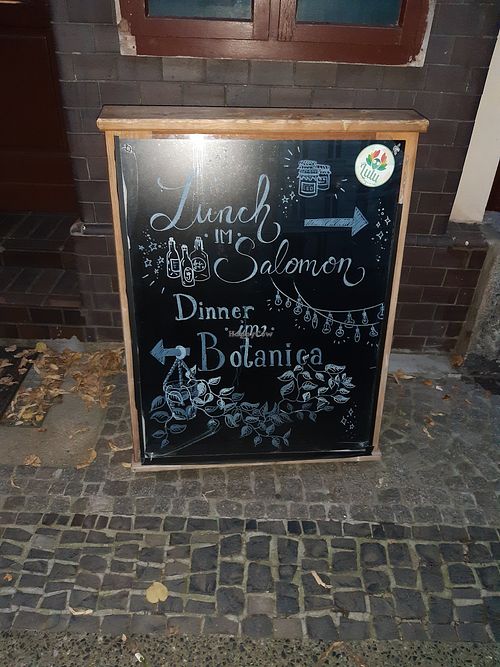 Lulu
Lunch
IM
Salomon
Dinner
im
Botanica
HappyCow